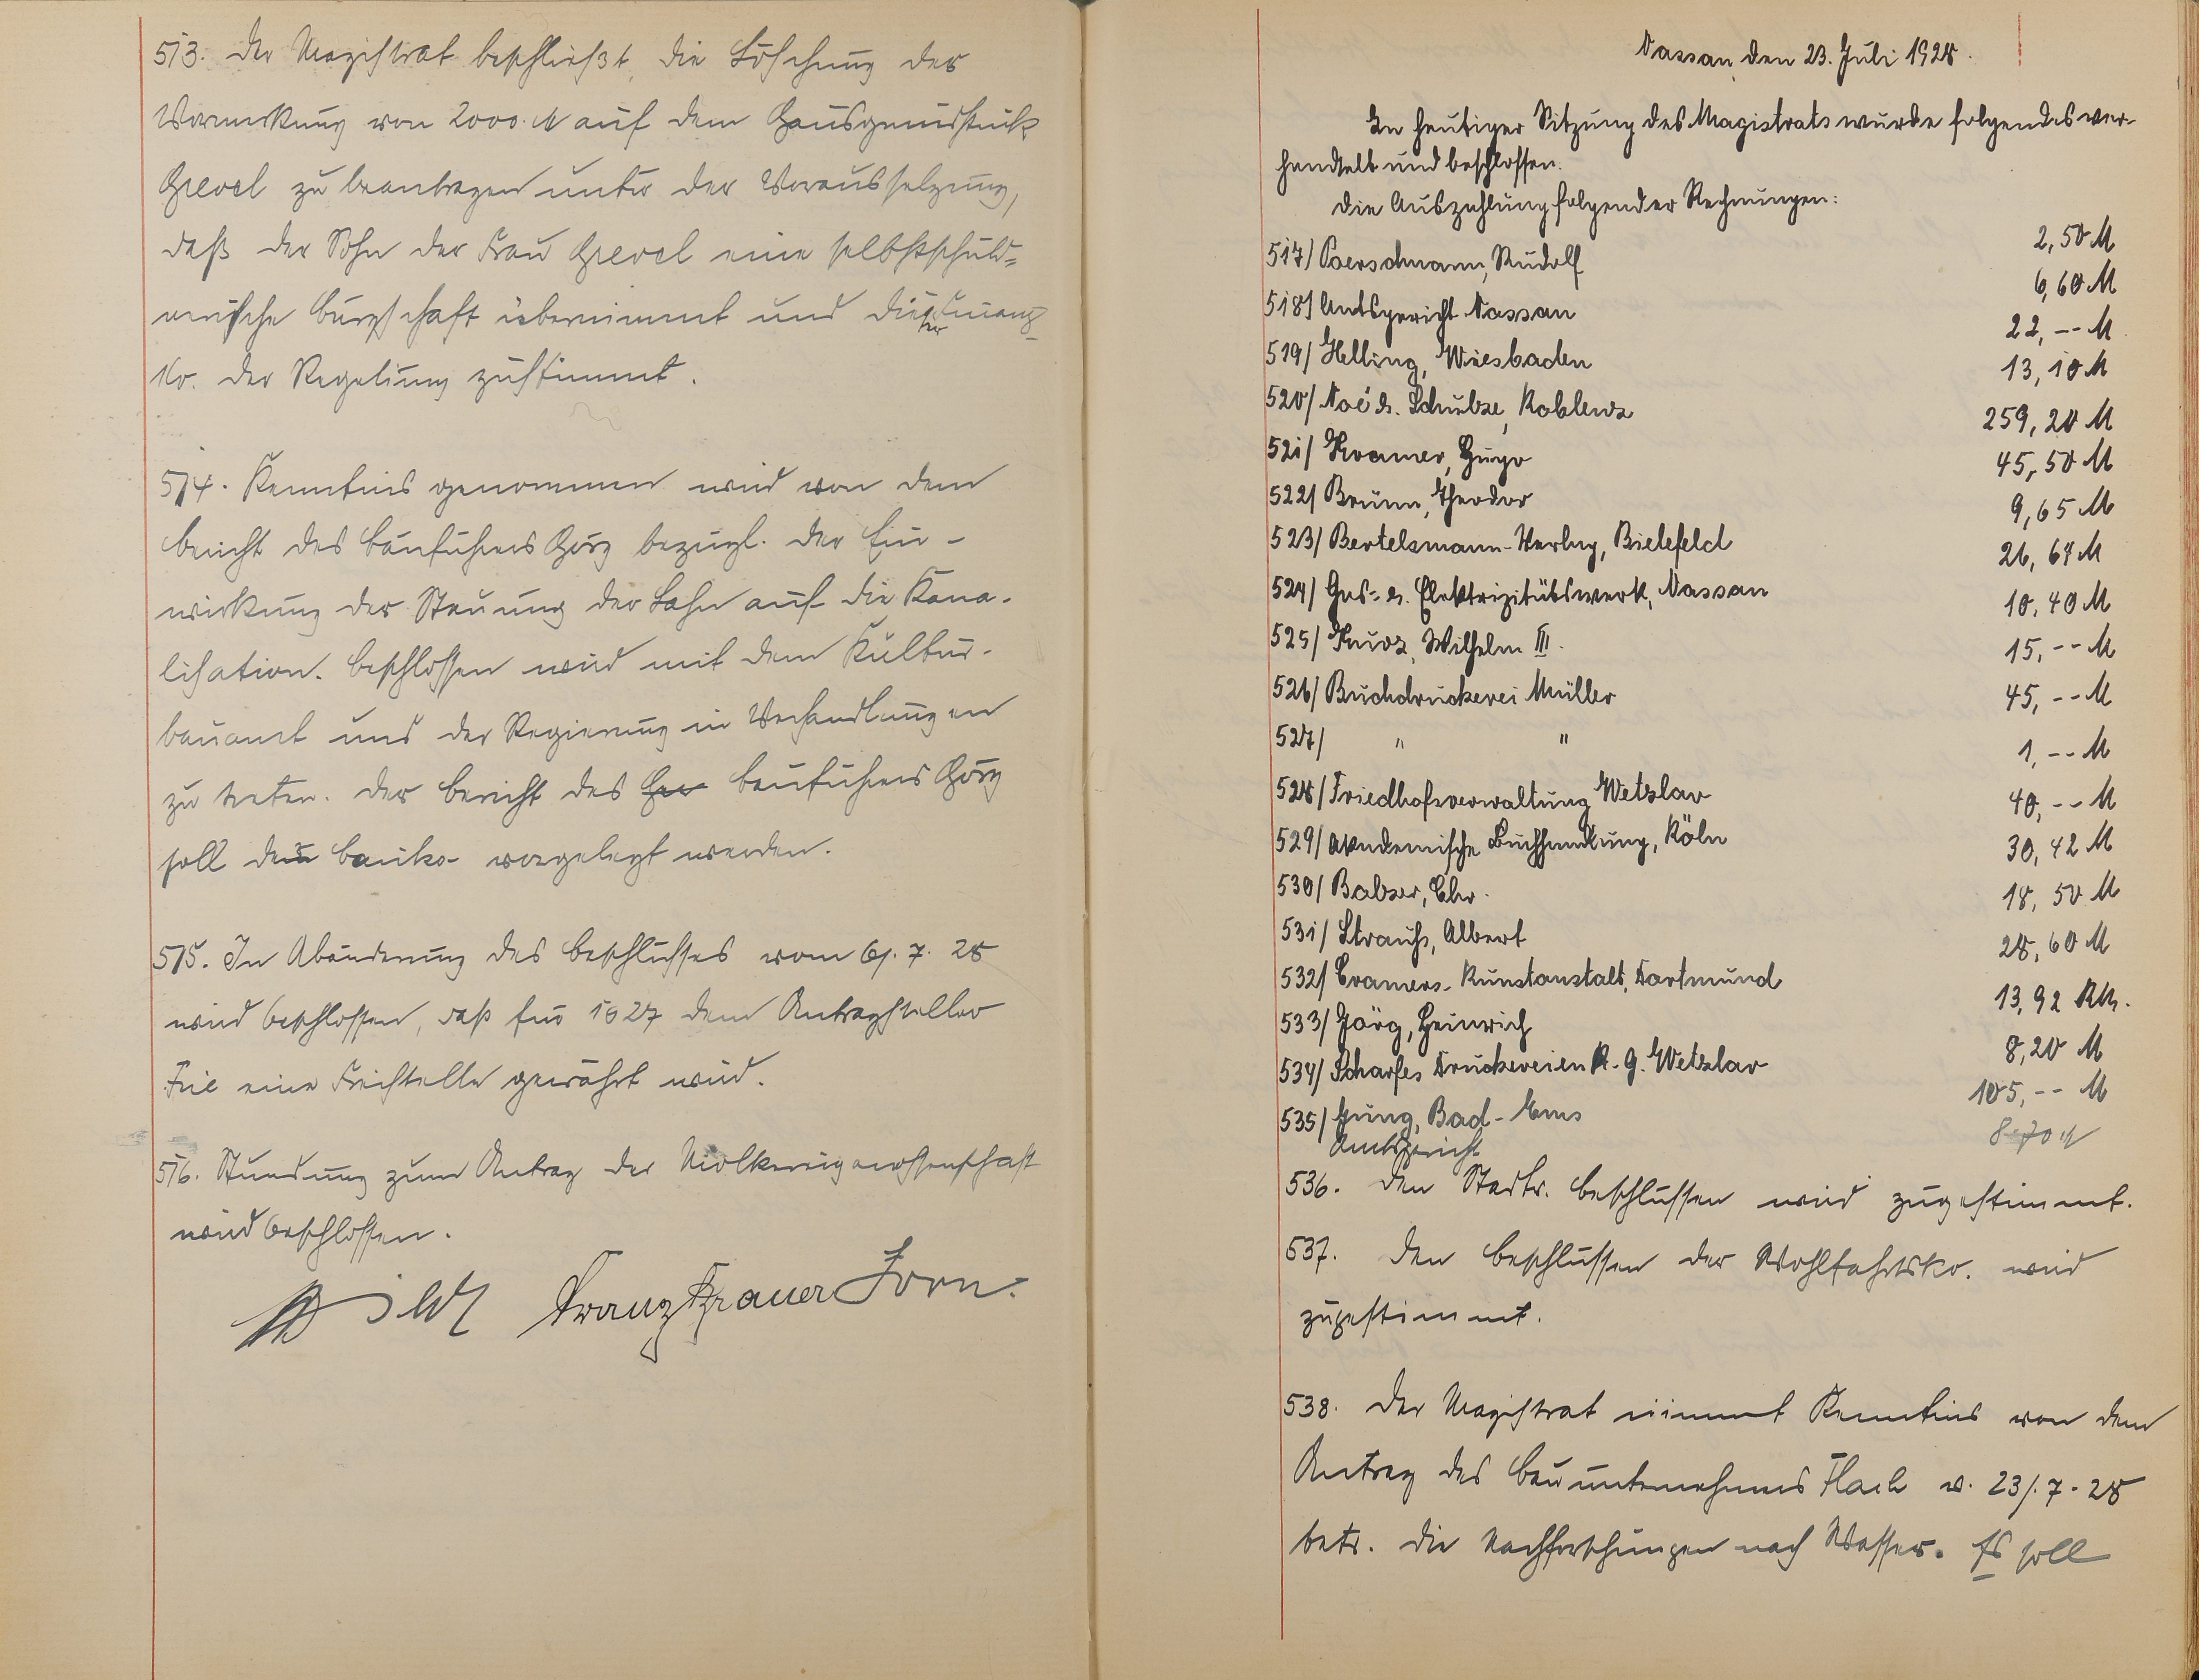 513. Der Magistrat beschließt, die Löschung der
Vormerkung von 2000 M auf dem Hausgrundstück
zu beantragen unter der Voraussetzung,
daß der Sohn der Frau eine selbstschuld-
nerische Bürgschaft übernimmt und die Finanz-
Ko. der Regelung zustimmt.
514. Kenntnis genommen wird von dem
Bericht des Bauführers bezügl. der Ein-
wirkung der Stauung der Lahn auf die Kana-
lisation. Beschlossen wird mit dem Kultur-
bauamt und der Regierung in Verhandlungen
zu treten. Der Bericht des Bauführers
soll der Bauko vorgelegt werden.
515. In Abänderung des Beschlusses vom 6/. 7. 28
wird beschlossen, daß für 1927 dem Antragsteller
eine Freistelle gewährt wird.
516. Stundung zum Antrag der Molkereigenossenschaft
wird beschlossen.
Franz Horn.
Nassau, den 23. Juli 1928.
In heutiger Sitzung des Magistrats wurde folgendes ver-
handelt und beschlossen.
Die Auszahlung folgender Rechnungen:
517/ Poerschmann, Rudolf 2,50 M
518/ Amtsgericht Nassau 6,60 M
519/ Helling, Wiesbaden 22,-- M
520/ Noé & Schulze, Koblenz 13,10 M
521/ Kramer, Hugo 259,20 M
522/ Brünn, Theodor 45,50 M
523/ Bertelsmann-Verlag, Bielefeld 9,65 M
524/ Gas- u. Elektrizitätswerk, Nassau 26,64 M
525/ Kurz, Wilhelm III. 10,40 M
526/ Buchdruckerei Müller 15,-- M
527/ " " 45,-- M
528/ Friedhofsverwaltung Wetzlar 1,-- M
529/ Akademische Buchhandlung, Köln 40,-- M
530/ Balzer, Chr. 30,42 M
531/ Strauß, Albert 18,50 M
532/ Cramers-Kunstanstalt, Dortmund 28,60 M
533/ Jörg, Heinrich 13,92 RM.
534/ Scharfes Druckereien K.G. Wetzlar 8,20 M
535/ Jung, Bad-Ems 105,-- M
Amtsgericht 8.70 M
536. Den Stadtv. Beschlüssen wird zugestimmt.
537. Den Beschlüssen der Wohlfahrtsko. wird
zugestimmt.
538. Der Magistrat nimmt Kenntnis von dem
Antrag des Bauunternehmers Flach v. 23/. 7. 28
betr. die Nachforschungen nach Wasser. Es soll